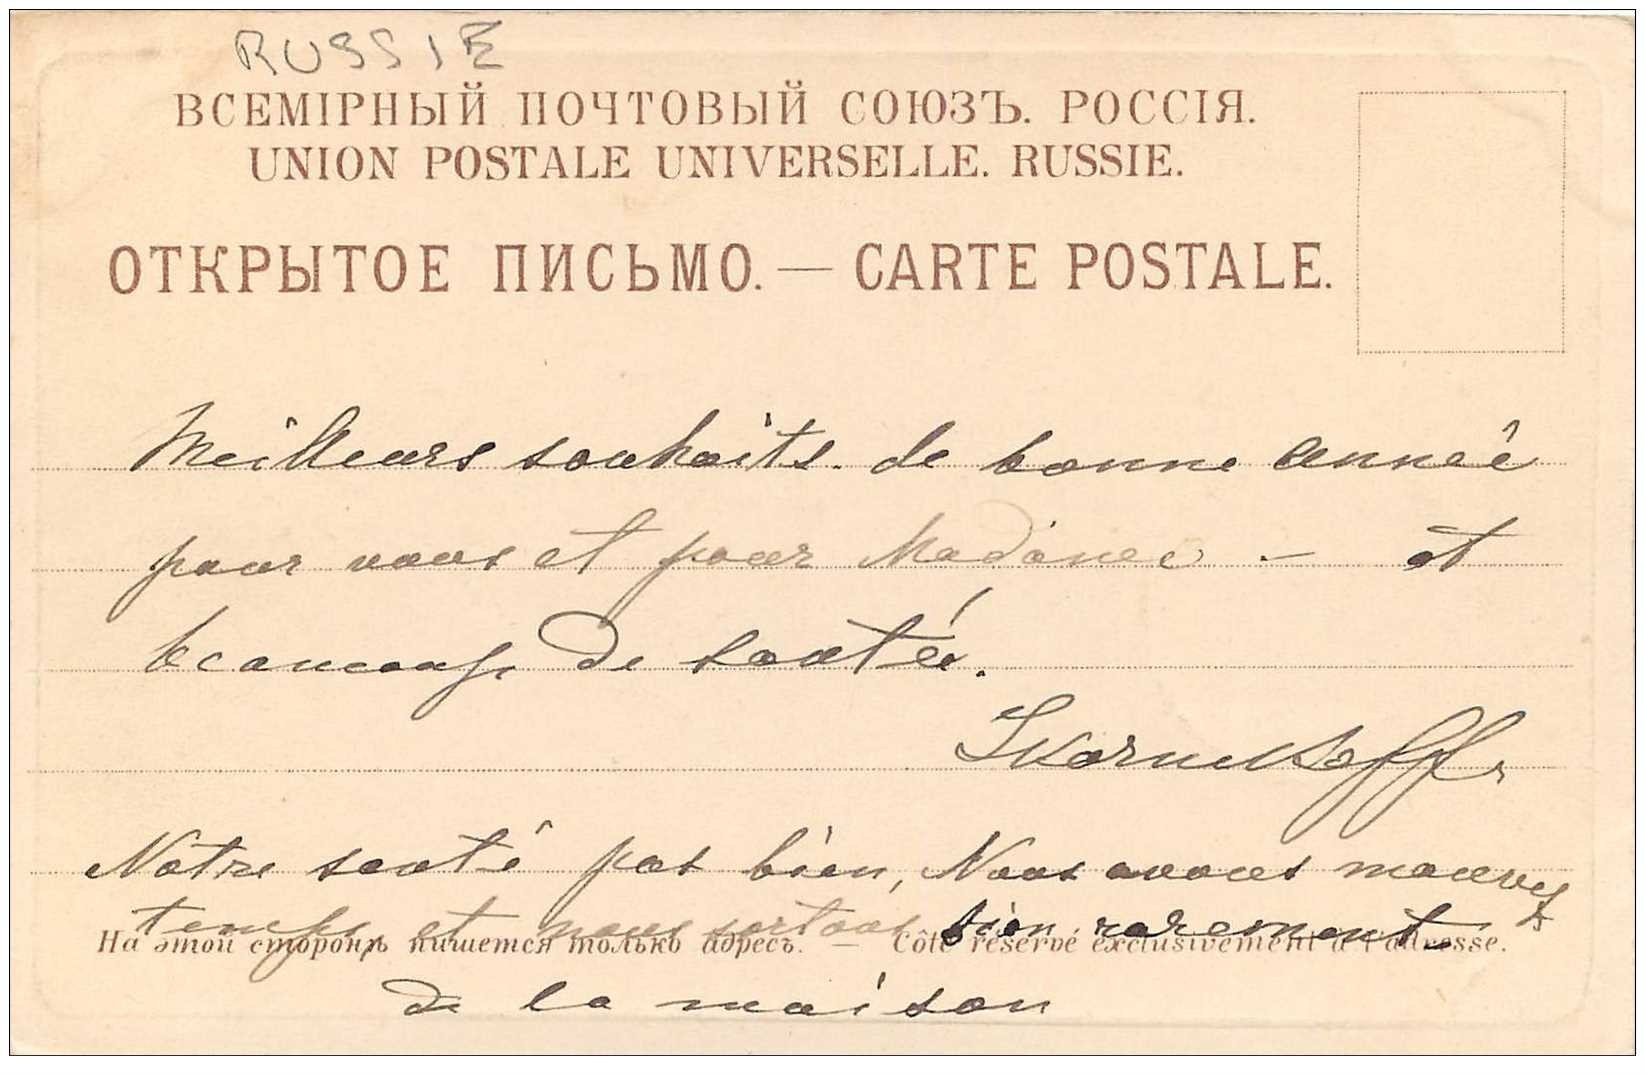 RUSSIE
ВСЕМІРНЫЙ ПОЧТОВЫЙ СОЮЗЪ. РОССІЯ.
UNION POSTALE UNIVERSELLE. RUSSIE.
ОТКРЫТОЕ ПИСЬМО. — CARTE POSTALE.
Meilleurs souhaits de bonne année
pour vous et pour Madame — et
beaucoup de santée.
Notre santé pas bien, Nous avons mauvais
temps et nous sortons bien rarement
На этой сторонѣ пишется только адресъ. — Côté réservé exclusivement à l'adresse.
de la maison